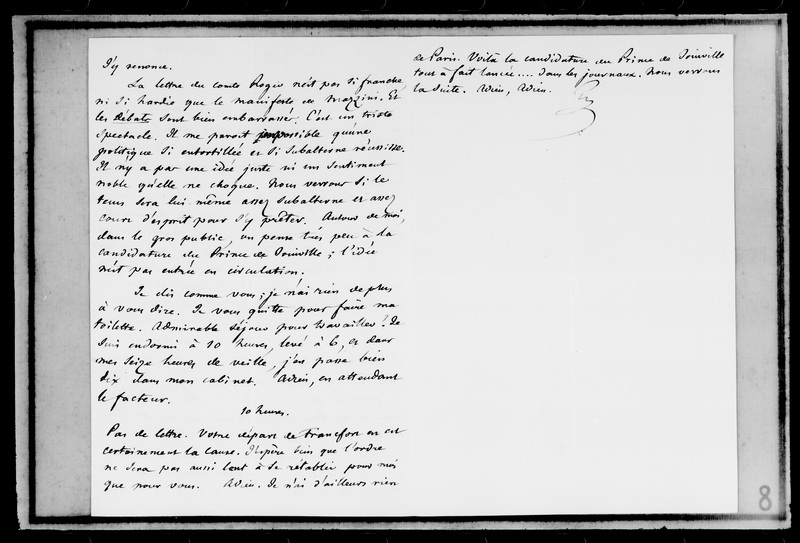 J'y renonce.
La lettre du comte Roger n'est pas si franche
ni si hardie que le manifeste de Mazzini. Et
les débats sont bien embarrassés. C'est un triste
spectacle. Il me parait impossible qu'une
politique si entortillée et si subalterne réussisse.
Il n'y a pas une idée juste ni un sentiment
noble qu'elle ne choque. Nous verrons si le
tems sera lui même assez subalterne et assez
court d'esprit pour s'y prêter. Autour de moi,
dans le gros public, on pense très peu à la
candidature du Prince de Joinville ; l'idée
n'est pas entrée en circulation.
Je dis comme vous ; je n'ai rien de plus
à vous dire. Je vous quitte pour faire ma
toilette. Admirable séjour pour travailler ! Je
suis endormi à 10 heures, levé à 6, et dans
mes seize heures de veille, j'en passe bien
dix dans mon cabinet. Adieu, en attendant
le facteur.
10 heures.
Pas de lettre. Votre départ de Francfort en est
certainement la cause. J'espère bien que l'ordre
ne sera pas aussi lent à se rétablir pour moi
que pour vous. Adieu. Je n'ai d'ailleurs rien
de Paris. Voilà la candidature du Prince de Joinville
tout à fait lancée.... dans les journaux. Nous verrons
la suite. Adieu, Adieu.
8